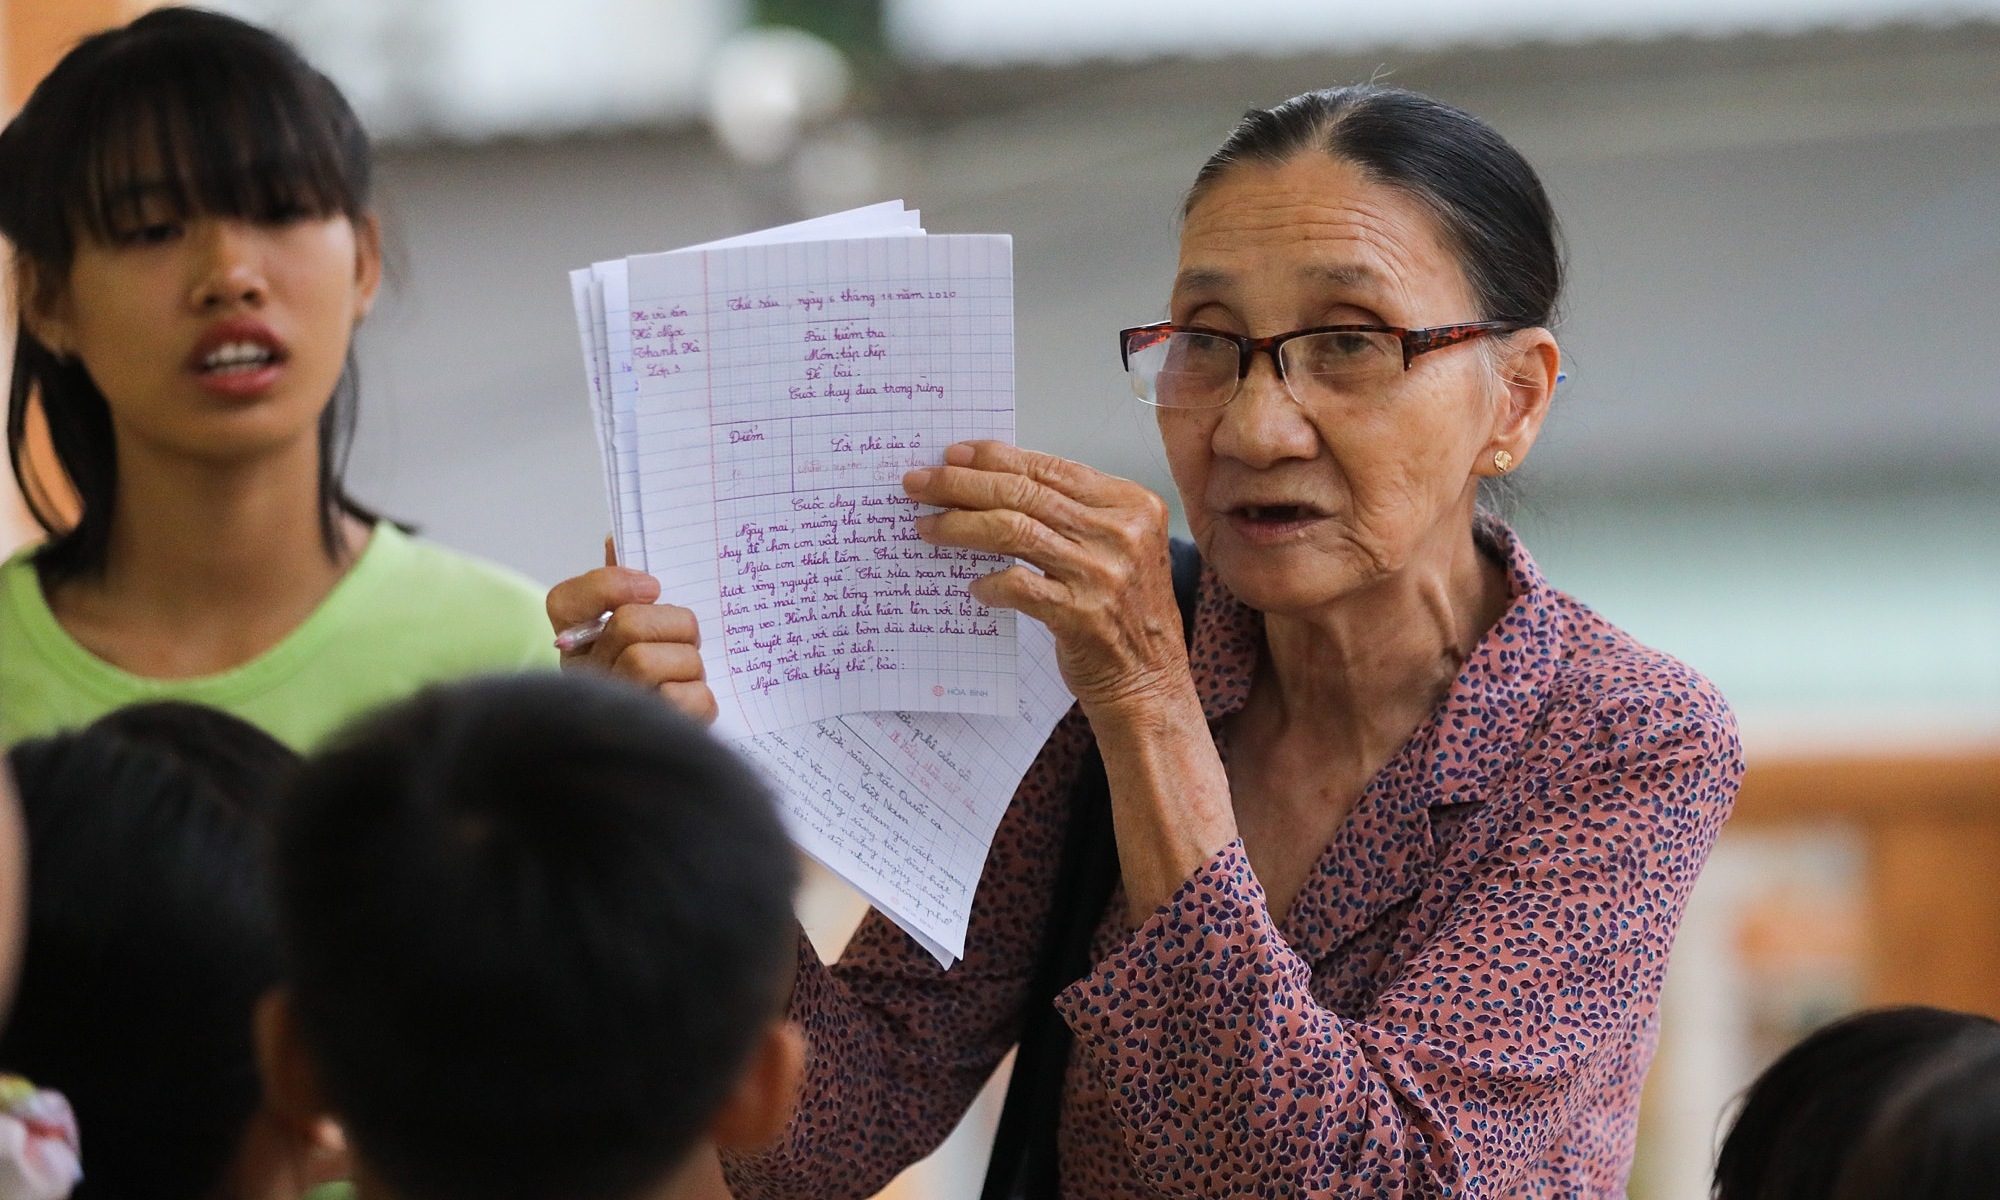 Họ và tên
Hồ Ngọc
Thanh Hà
Lớp 3
Thứ sáu, ngày 6 tháng 11 năm 2020
Bài kiểm tra
Môn: tập chép
Đề bài.
Cuộc chạy đua trong rừng
Điểm
Lời phê của cô
Cuộc chạy đua trong
Ngày mai, muông thú trong rừng
chạy để chọn con vật nhanh nhất
Ngựa con thích lắm. Chú tin chắc sẽ giành
được vòng nguyệt quế. Chú sửa soạn không
chán và mải mê soi bóng mình dưới dòng
trong veo. Hình ảnh chú hiện lên với bộ đồ
nâu tuyệt đẹp, với cái bờm dài được chải chuốt
ra dáng một nhà vô địch...
Ngựa Cha thấy thế, bảo:
HÒA BÌNH
phê của cô
Người sáng tác Quốc ca
Việt Nam
nhạc sĩ Văn Cao tham gia cách mạng
khi còn trẻ. Ông sáng tác bài hát